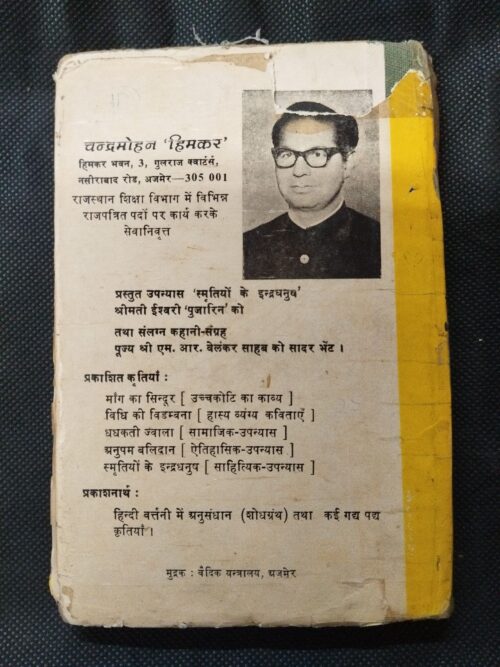 चन्द्रमोहन 'हिमकर'
हिमकर भवन, 3, गुलराज क्वार्टर्स,
नसीराबाद रोड, अजमेर—305 001
राजस्थान शिक्षा विभाग में विभिन्न
राजपत्रित पदों पर कार्य करके
सेवानिवृत्त
प्रस्तुत उपन्यास 'स्मृतियों के इन्द्रधनुष'
श्रीमती ईश्वरी 'पुजारिन' को
तथा संलग्न कहानी-संग्रह
पूज्य श्री एम. आर. वेलंकर साहब को सादर भेंट ।
प्रकाशित कृतियां :
माँग का सिन्दूर [ उच्चकोटि का काव्य ]
विधि की विडम्बना [ हास्य व्यंग्य कविताएँ ]
धधकती ज्वाला [ सामाजिक-उपन्यास ]
अनुपम बलिदान [ ऐतिहासिक-उपन्यास ]
स्मृतियों के इन्द्रधनुष [ साहित्यिक-उपन्यास ]
प्रकाशनार्थ :
हिन्दी वर्त्तनी में अनुसंधान (शोधग्रंथ) तथा कई गद्य पद्य
कृतियाँ ।
मुद्रक : वैदिक यन्त्रालय, अजमेर